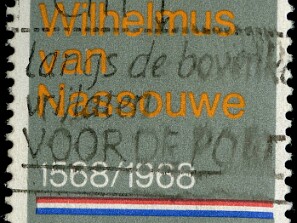 Wilhelmus
van
Nassouwe
1568/1968
laat ijs de bovenste
VOOR DE POST